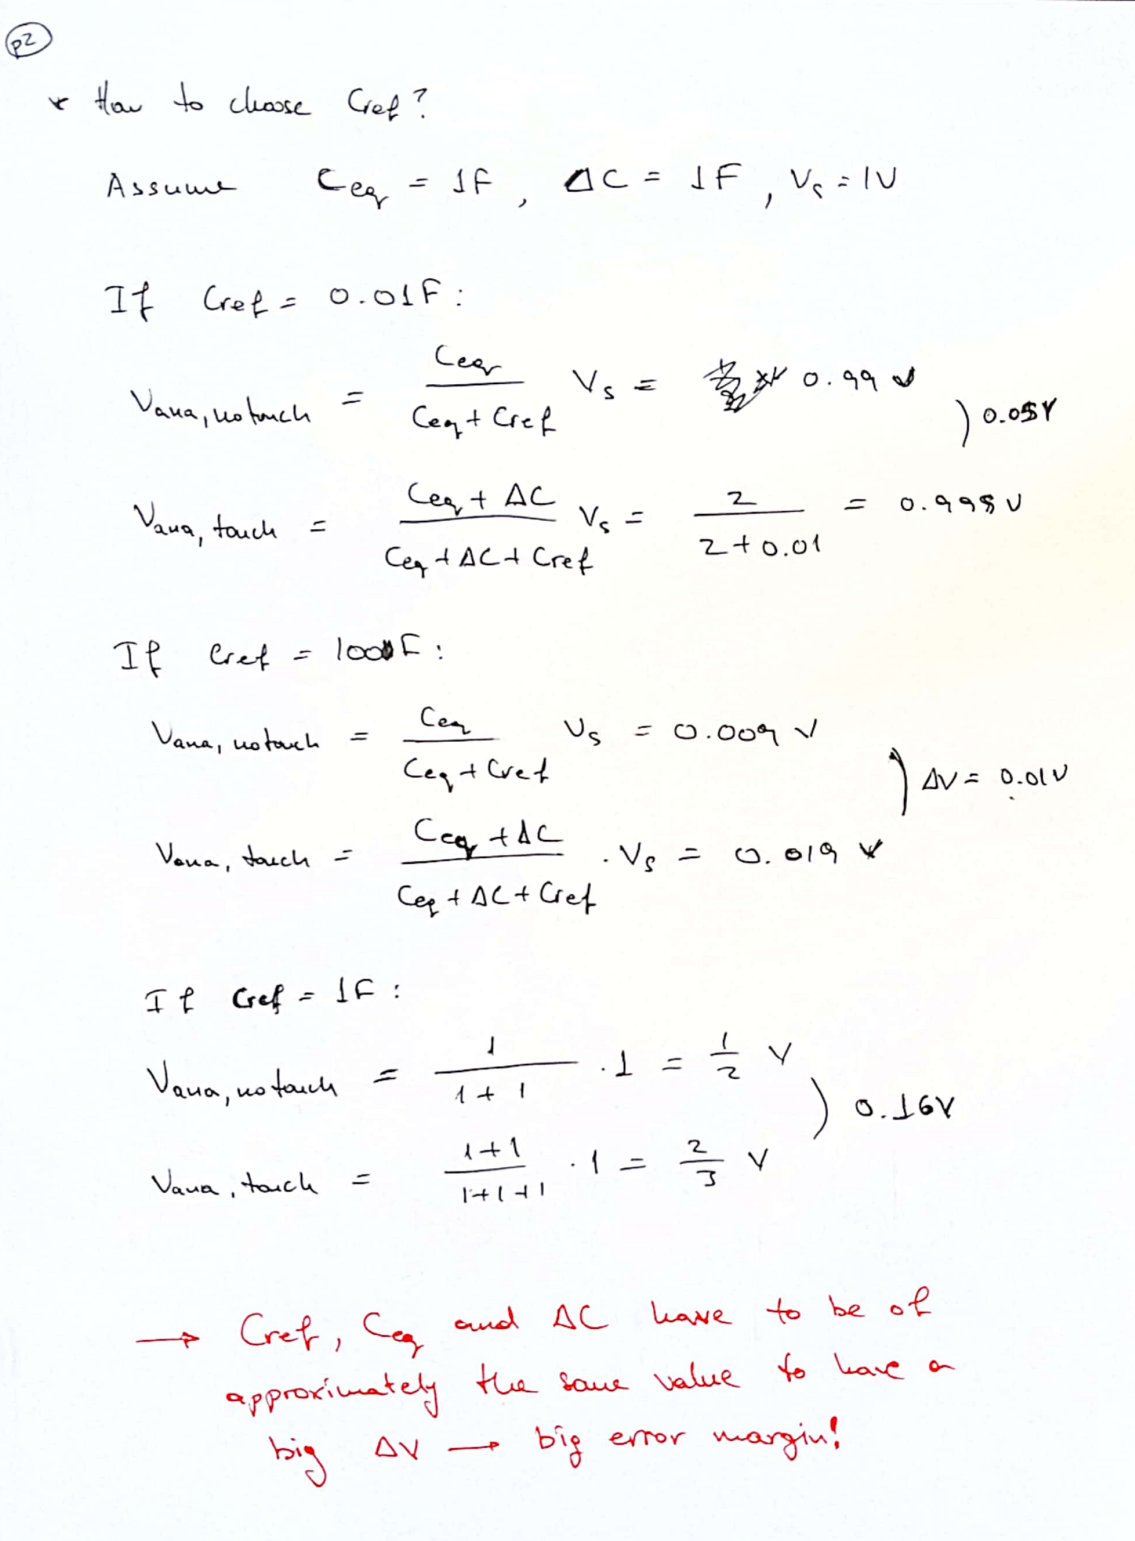 p2
* How to choose Cref?
Assume Ceq = 1F, ΔC = 1F, Vs = 1V
If Cref = 0.01F:
Vana, no touch = Ceq / (Ceq + Cref) Vs = 0.99 V
) 0.05V
Vana, touch = (Ceq + ΔC) / (Ceq + ΔC + Cref) Vs = 2 / (2 + 0.01) = 0.995 V
If Cref = 100F:
Vana, no touch = Ceq / (Ceq + Cref) Vs = 0.009 V
) ΔV = 0.01V
Vana, touch = (Ceq + ΔC) / (Ceq + ΔC + Cref) . Vs = 0.019 V
If Cref = 1F:
Vana, no touch = 1 / (1 + 1) . 1 = 1/2 V
) 0.16V
Vana, touch = (1+1) / (1+1+1) . 1 = 2/3 V
→ Cref, Ceq and ΔC have to be of
approximately the same value to have a
big ΔV → big error margin!